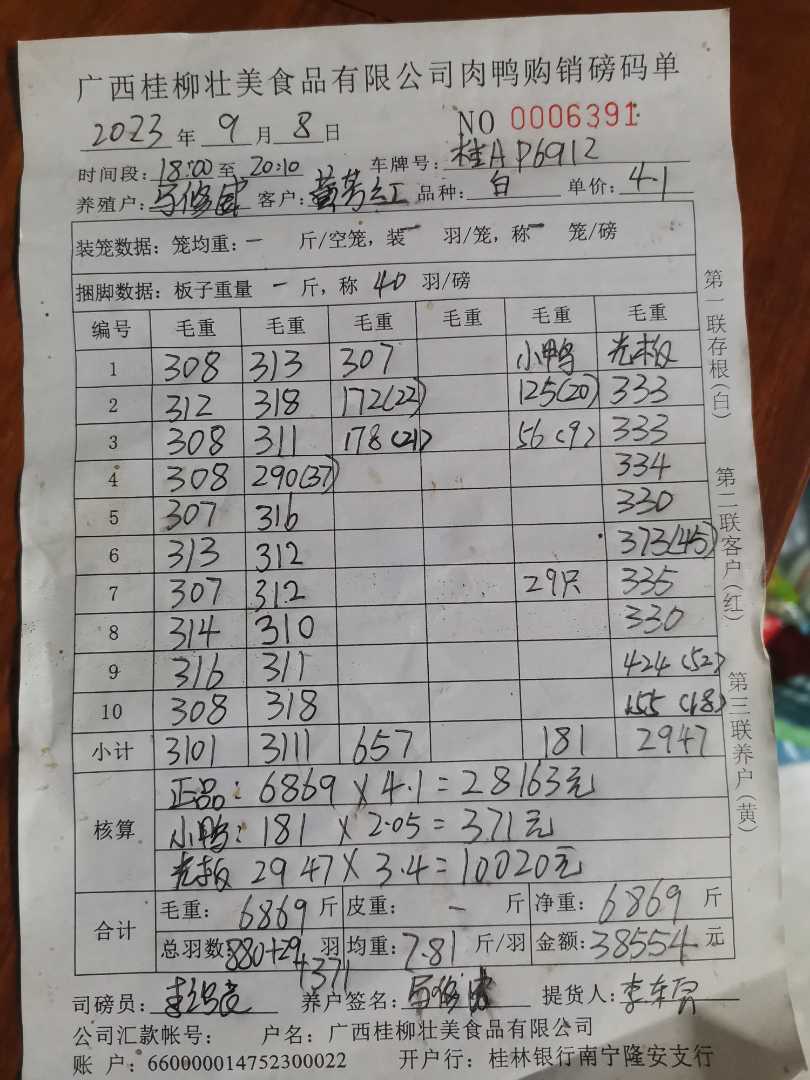 广西桂柳壮美食品有限公司肉鸭购销磅码单
2023年 9月 8日 NO 0006391
时间段:18:00至20:10 车牌号:桂AP6912
养殖户: 客户:黄芳红 品种:白 单价:4.1
装笼数据:笼均重:一 斤/空笼,装一 羽/笼,称一 笼/磅
捆脚数据:板子重量 一 斤,称 40 羽/磅
编号 毛重 毛重 毛重 毛重 毛重 毛重
1 308 313 307 小鸭 光板
2 312 318 172(22) 125(20) 333
3 308 311 178(21) 56(9) 333
4 308 290(37) 334
5 307 316 330
6 313 312 373(45)
7 307 312 29只 335
8 314 310 330
9 316 311 424(52)
10 308 318 155(18)
小计 3101 3111 657 181 2947
核算
正品:6869×4.1=28163元
小鸭:181×2.05=371元
光板 2947×3.4=10020元
合计
毛重:6869斤 皮重:一 斤 净重:6869斤
总羽数:880+29羽 均重:7.81斤/羽 金额:38554元
+371
司磅员: 养户签名: 提货人:
公司汇款帐号: 户名:广西桂柳壮美食品有限公司
账 户:660000014752300022 开户行:桂林银行南宁隆安支行
第一联存根(白)
第二联客户(红)
第三联养户(黄)